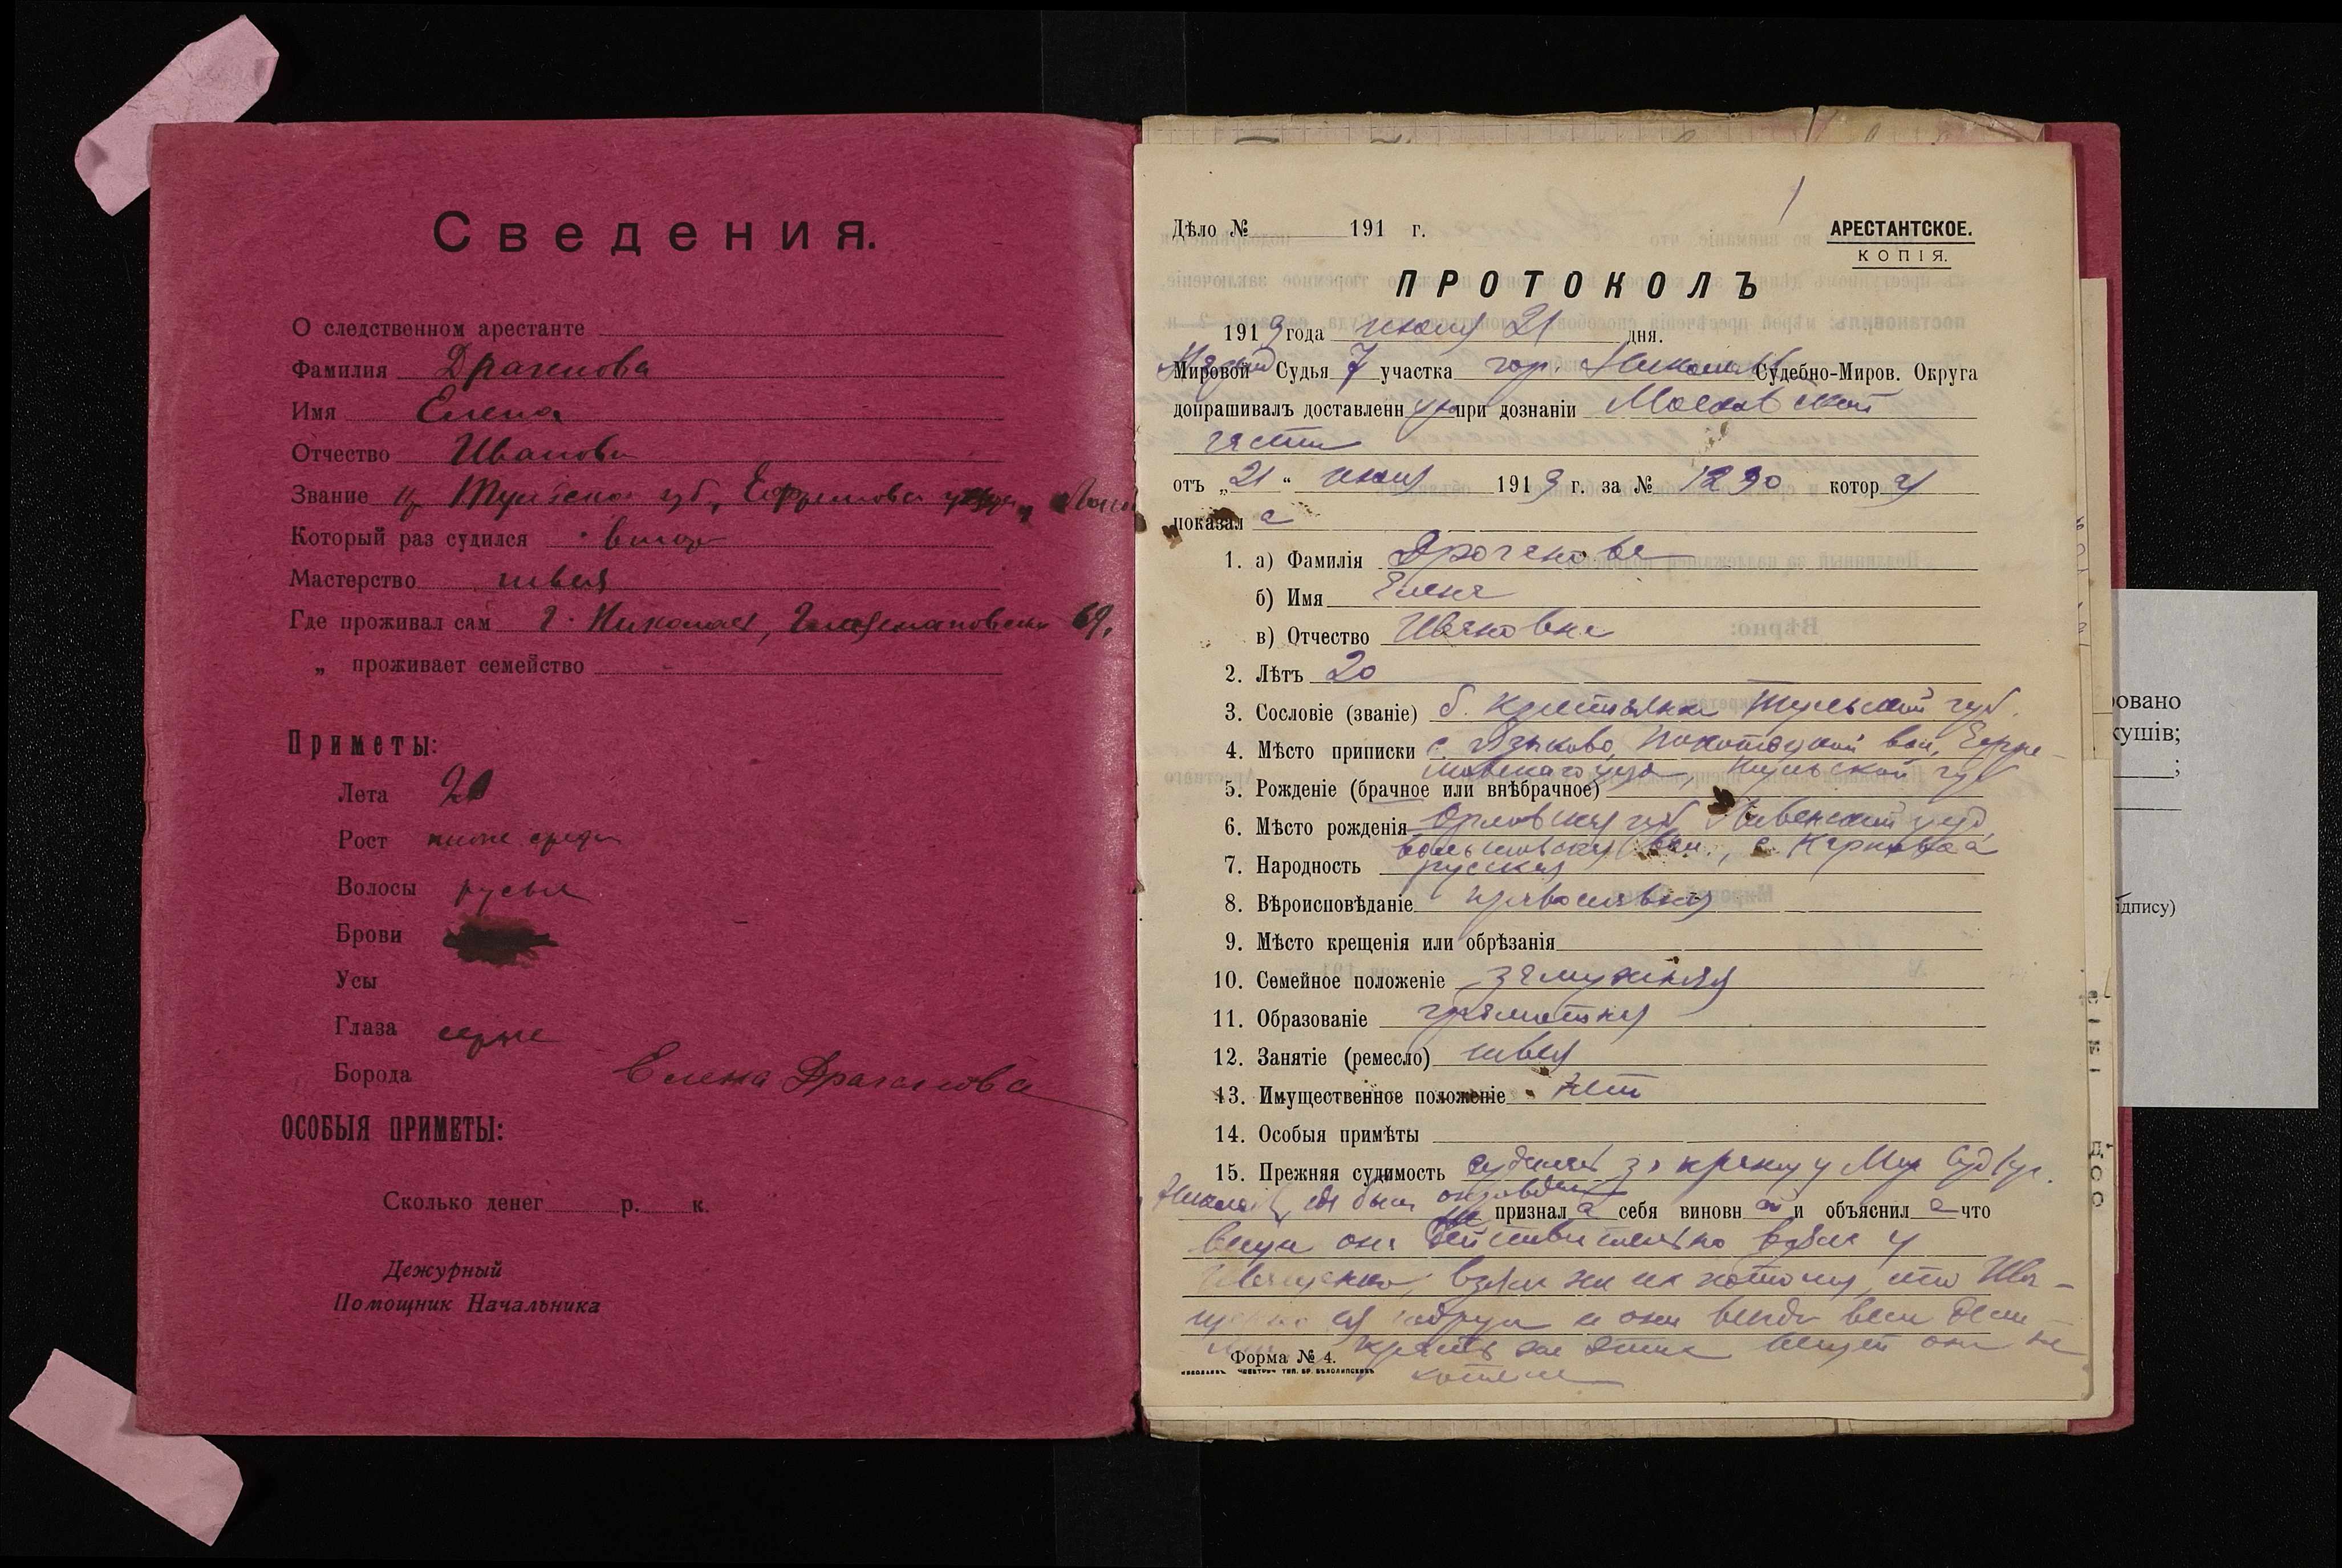 Сведения.
О следственном арестанте
Фамилия Драгенова
Имя Елена
Отчество Ивановн
Звание Тульской губ, Ефремова
Который раз судился
Мастерство швея
Где проживал сам г. Николаев, 69,
„ проживает семейство
Приметы:
Лета 20
Рост ниже средн
Волосы русые
Брови
Усы
Глаза серые
Борода
Елена Драгенова
ОСОБЫЯ ПРИМЕТЫ:
Сколько денег р. к.
Дежурный
Помощник Начальника
Дѣло № 191 г.
АРЕСТАНТСКОЕ.
КОПІЯ.
ПРОТОКОЛЪ
1919 года 21 дня.
Мировой Судья 7 участка гор. Николаев Судебно-Миров. Округа
допрашивалъ доставленн ую при дознаніи Московской
части
отъ „21“ 1919 г. за № 1290 котор ая
показал а
1. а) Фамилія Драгенова
б) Имя Елена
в) Отчество Ивановна
2. Лѣтъ 20
3. Сословіе (званіе) б. крестьянка Тульской губ.
4. Мѣсто приписки с. Языково, вол, Ефре-
мовскаго уезда, Тульской губ
5. Рожденіе (брачное или внѣбрачное)
6. Мѣсто рожденія Орловская губ Ливенский уезд,
вол., с.
7. Народность русская
8. Вѣроисповѣданіе православная
9. Мѣсто крещенія или обрѣзанія
10. Семейное положеніе замужняя
11. Образованіе грамотная
12. Занятіе (ремесло) швея
13. Имущественное положеніе нет
14. Особыя примѣты
15. Прежняя судимость судилась за кражу у Мир Суд
Николаев, где была оправдана
не признал а себя виновн ой и объяснил а что
вещи она действительно взяла у
Иващенко, взяла же их потому, что Ива-
щенко ея подруга и они
красть же этих вещей она не
хотела
Форма № 4.
ровано
кушів;
ідпису)